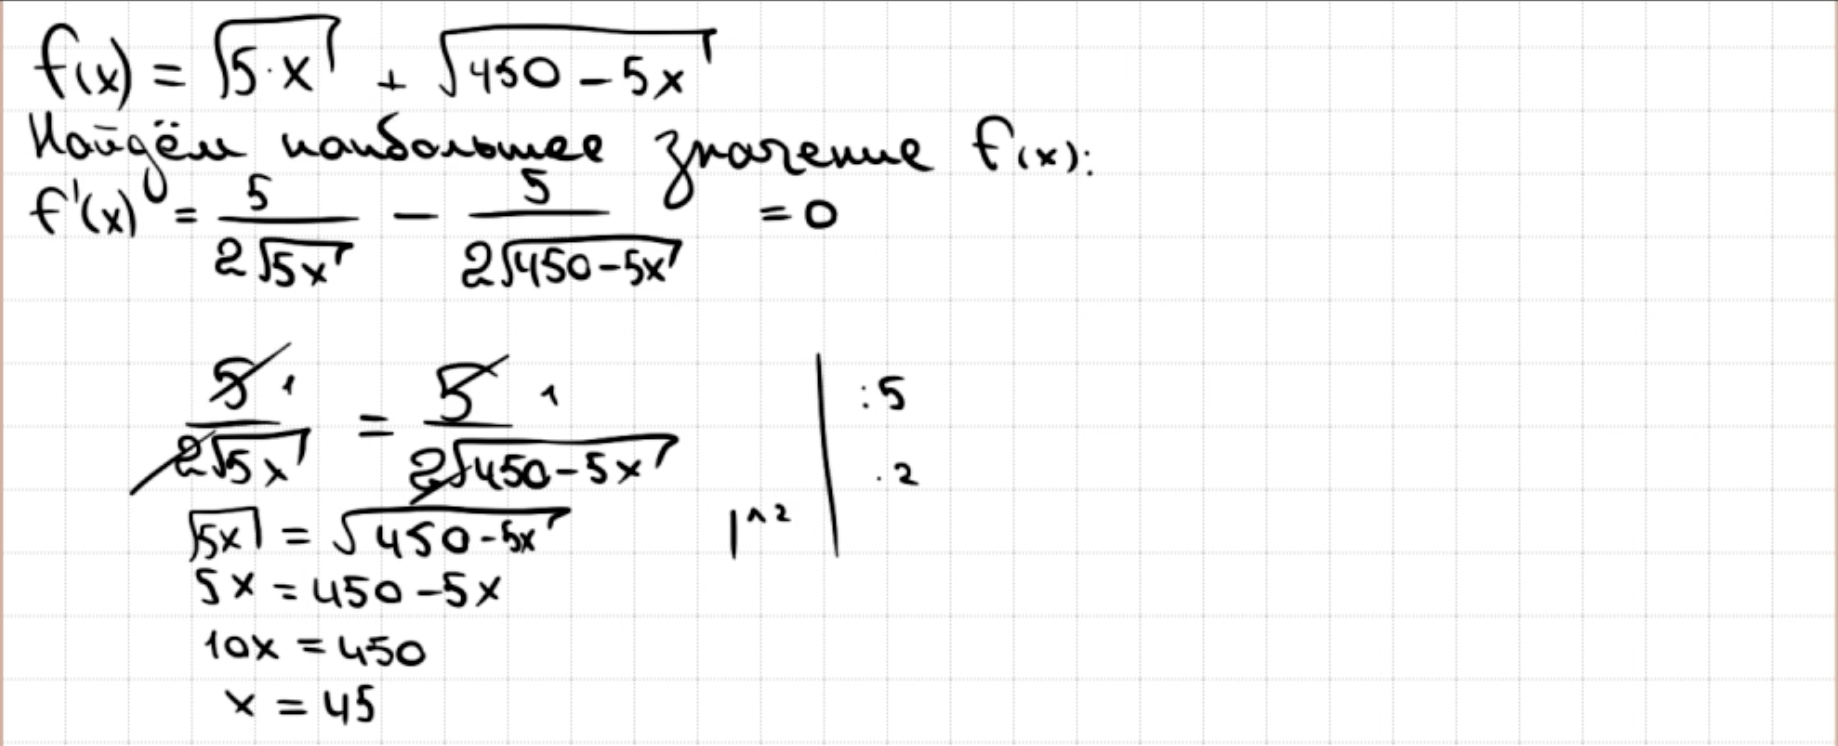 f(x) = √(5·x) + √(450 – 5x)
Найдём наибольшее значение f(x):
f'(x) = 5/(2√(5x)) – 5/(2√(450–5x)) = 0
5 1/(2√(5x)) = 5 1/(2√(450–5x)) | :5
·2
√(5x) = √(450–5x) |^2
5x = 450 –5x
10x = 450
x = 45